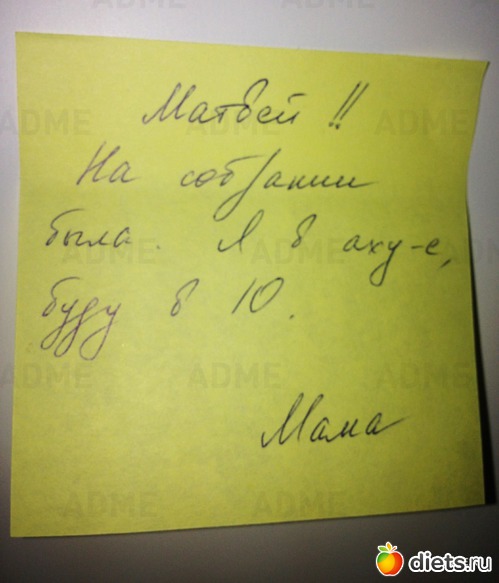 Матвей !!
На собрании
была. Я в аху-е,
буду в 10.
Мама
ADME
ADME
ADME
ADME
ADME
ADME
ADME
ADME
ADME
ADME
ADME
ADME
diets.ru